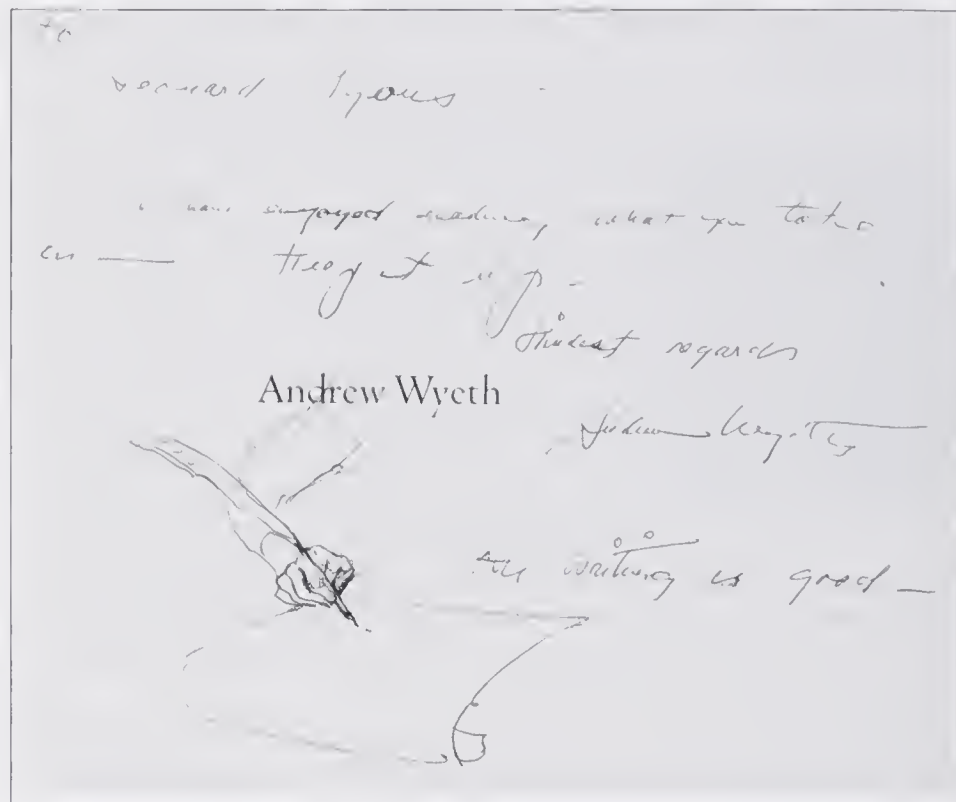 to
Leonard Lyons
I have enjoyed reading what you
on — Keep it up —
Kindest regards
Andrew Wyeth
Andrew Wyeth
The writing is good —